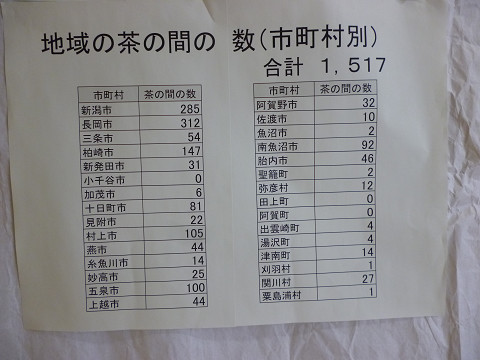 地域の茶の間の 数(市町村別)
合計 1,517
市町村 茶の間の数
新潟市 285
長岡市 312
三条市 54
柏崎市 147
新発田市 31
小千谷市 0
加茂市 6
十日町市 81
見附市 22
村上市 105
燕市 44
糸魚川市 14
妙高市 25
五泉市 100
上越市 44
市町村 茶の間の数
阿賀野市 32
佐渡市 10
魚沼市 2
南魚沼市 92
胎内市 46
聖籠町 2
弥彦村 12
田上町 0
阿賀町 0
出雲崎町 4
湯沢町 4
津南町 14
刈羽村 1
関川村 27
粟島浦村 1